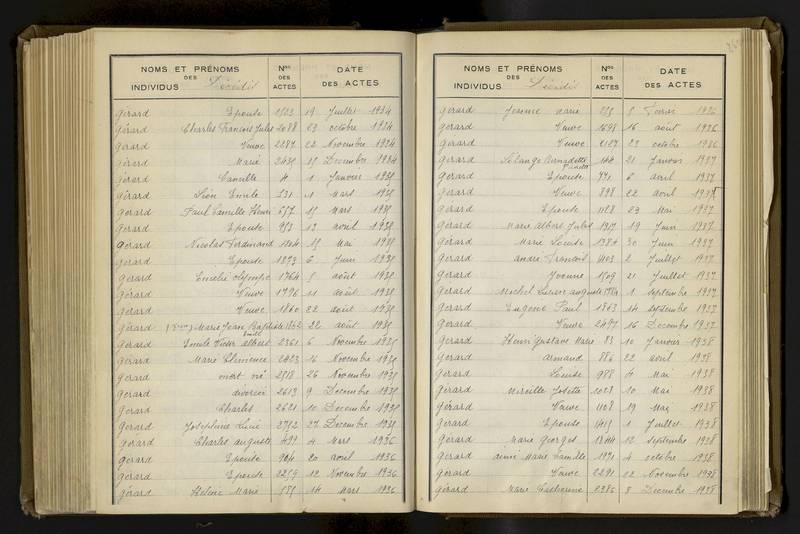 NOMS ET PRÉNOMS
DES
INDIVIDUS Décédés
Nos
DES
ACTES
DATE
DES ACTES
Gérard Epouse 19 Juillet 1934
Gérard Charles François Jules 2088 23 octobre 1934
Gérard Veuve 2287 22 Novembre 1934
Gérard Marie 15 Décembre 1934
Gérard Camille 4 1 Janvier 1935
Gérard Léon Emile 531 1 Mars 1935
Gérard Paul Camille Henri 15 Mars 1935
Gérard Epouse 12 avril 1935
Gérard Nicolas Ferdinand 15 Mai 1935
Gérard Epouse 1273 6 Juin 1935
Gérard Emélie olympe 1764 5 août 1935
Gérard Veuve 1796 11 août 1935
Gérard Veuve 1860 22 août 1935
Gérard Marie Jean Baptiste 1862 22 août 1935
Gérard Emile Victor albert 2361 6 Novembre 1935
Gérard Marie Clémence 2423 16 Novembre 1935
Gérard mort né 2518 26 Novembre 1935
Gérard divorcée 2613 9 Décembre 1935
Gérard Charles 2621 10 Décembre 1935
Gérard Joséphine Lucie 2752 27 Décembre 1935
Gérard Charles auguste 499 4 Mars 1936
Gérard Epouse 904 20 avril 1936
Gérard Epouse 2259 12 Novembre 1936
Gérard Hélène Marie 14 Mars 1936
NOMS ET PRÉNOMS
DES
INDIVIDUS Décédés
Nos
DES
ACTES
DATE
DES ACTES
Gérard Jeanne Marie 1936
Gérard Veuve 1698 16 août 1936
Gérard Veuve 27 octobre 1936
Gérard Solange Bernadette 144 21 Janvier 1937
Gérard Epouse 771 6 avril 1937
Gérard Veuve 898 22 avril 1937
Gérard Epouse 1188 23 Mai 1937
Gérard Marie Albert Jules 1317 19 Juin 1937
Gérard Marie Louise 1384 30 Juin 1937
Gérard andré François 1403 2 Juillet 1937
Gérard Yvonne 1509 21 Juillet 1937
Gérard Michel Lucien auguste 1784 1 septembre 1937
Gérard Eugène Paul 1863 14 septembre 1937
Gérard Veuve 2497 16 Décembre 1937
Gérard Henri Gustave Marie 83 10 Janvier 1938
Gérard armand 886 22 avril 1938
Gérard Louise 988 4 Mai 1938
Gérard Mireille Josette 1028 10 Mai 1938
Gérard Veuve 1108 19 Mai 1938
Gérard Epouse 1415 1 Juillet 1938
Gérard Marie Georges 12 septembre 1938
Gérard aimée Marie Camille 1971 4 octobre 1938
Gérard Veuve 2291 22 Novembre 1938
Gérard Marie Catherine 2386 8 Décembre 1938